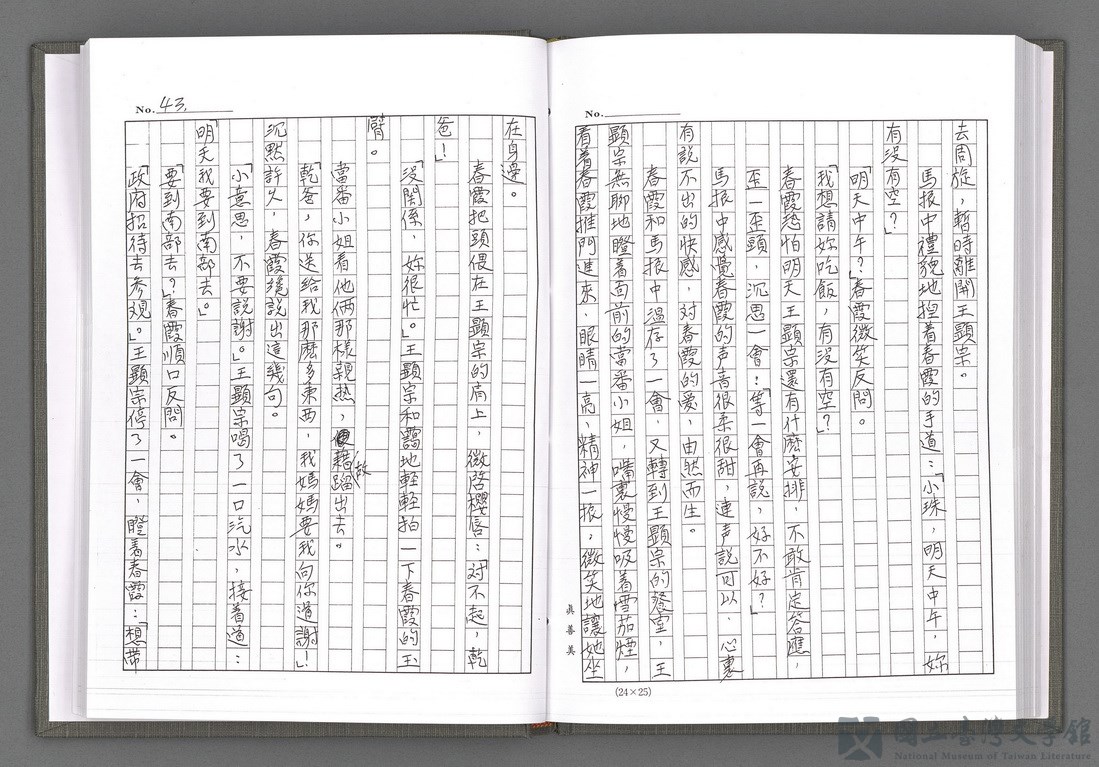 No.
去周旋，暫時離開王顯宗。
馬振中禮貌地捏着春霞的手道：「小珠，明天中午，妳
有沒有空？」
「明天中午？」春霞微笑反問。
「我想請妳吃飯，有沒有空？」
春霞恐怕明天王顯宗還有什麼安排，不敢肯定答應，
歪一歪頭，沉思一會：「等一會再說，好不好？」
馬振中感覺春霞的声音很柔很甜，連声說可以，心裏
有說不出的快感，对春霞的爱，由然而生。
春霞和馬振中溫存了一會，又轉到王顯宗的餐室，王
顯宗無聊地瞪着面前的當番小姐，嘴裏慢慢吸着雪茄煙，
看着春霞推門進來，眼睛一亮，精神一振，微笑地讓她坐
眞善美
(24×25)
No. 43.
在身邊。
春霞把頭偎在王顯宗的肩上，微啓櫻唇：「对不起，乾
爸！」
「沒關係，妳很忙。」王顯宗和靄地輕輕拍一下春霞的玉
臂。
當番小姐看他倆那樣親熱，藉故蹓出去。
「乾爸，你送給我那麼多東西，我媽媽要我向你道謝！」
沉默許久，春霞纔說出這幾句。
「小意思，不要說謝。」王顯宗喝了一口汽水，接着道：
「明天我要到南部去。」
「要到南部去？」春霞順口反問。
「政府招待去參观。」王顯宗停了一會，瞪着春霞：「想带
國立臺灣文學館
National Museum of Taiwan Literature